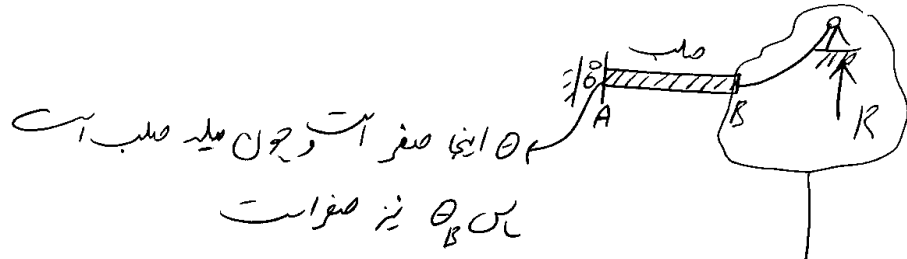 صلب
A
B
R
θ اینجا صفر است و چون میله صلب است
پس θ_B نیز صفر است